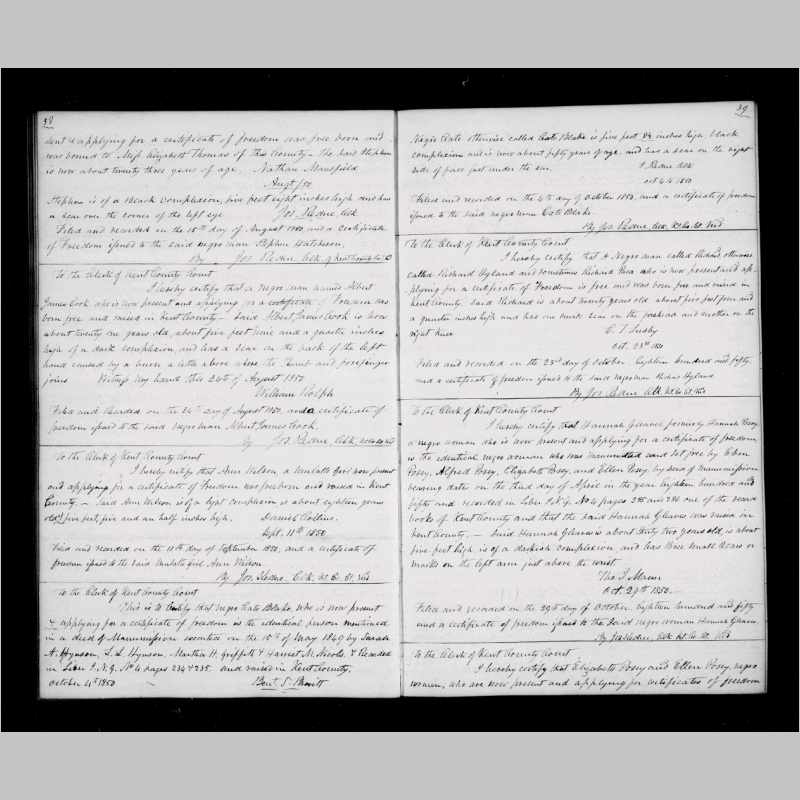 38
dent & applying for a certificate of freedom was free born and
was bound to Miss Elizabeth Thomas of this County - the said Stephen
is now about twenty three years of age. Nathan Mansfield
Augt /50
Stephen is of a black complexion, five feet eight inches high and has
a scar over the corner of the left eye Jos. Redue, Clk
Filed and recorded on the 15th day of August 1850, and a certificate
of Freedom issued to the said negro man Stephen
By Jos. Redue Clk. of Kent County Ct.
To the Clerk of Kent County Court
I hereby certify that a negro man named Albert
James Cook who is now present and applying for a certificate of Freedom was
born free and raised in Kent County - Said Albert James Cook is now
about twenty one years old, about five feet nine and a quarter inches
high of a dark complexion, and has a scar on the back of the left
hand caused by a burn a little above where the thumb and forefinger
joins Witness my hand this 24th of August 1850
William Rolph
Filed and Recorded on the 24th day of August 1850, and a certificate of
freedom issued to the said negro man Albert James Cook.
By Jos. Redue Clk,
To the Clerk of Kent County Court
I hereby certify that Ann Wilson, a Mulatto Girl now present
and applying for a certificate of Freedom was freeborn and raised in Kent
County. - Said Ann Wilson is of a light complexion is about eighteen years
old, five feet, five and an half inches high. Daniel Collins.
Sept. 11th 1850
Filed and recorded on the 11th day of September 1850, and a certificate of
freedom issued to the said mulatto girl Ann Wilson
By Jos. Redue, Clk,
To the Clerk of Kent County Court
This is to Certify that negro Cato Blake, who is now present
& applying for a certificate of freedom is the identical person mentioned
in a deed of Manumission executed on the 15th of May 1849 by Sarah
A. Hynson, S. L. Hynson, Martha H. Griffith & Harriet M. Nicols. & Recorded
in Liber J. N. G. No 4 pages 234 & 235. and raised in Kent County.
October 4th 1850 Benj. S.
39
Negro Cato otherwise called Cato Blake is five feet inches high black
complexion and is now about fifty years of age, and has a scar on the right
side of face just under the ear. J. Redue Clk
Oct 4th 1850
Filed and recorded on the 4th day of October 1850, and a certificate of freedom
issued to the said negro man Cato Blake.
By Jos. Redue, Clk,
To the Clerk of Kent County Court
I hereby certify that a Negro man called Richard otherwise
called Richard Hyland and sometimes Richard who is now present and ap-
plying for a certificate of Freedom is free and was born free and raised in
Kent County. Said Richard is about twenty years old about five feet four and
a quarter inches high and has one mark scar on the forehead and another on the
right knee
C. T. Lusby
Oct. 23rd 1850
Filed and recorded on the 23rd day of October Eighteen hundred and fifty
and a certificate of freedom issued to the said negro man Richard Hyland
By Jos. Redue Clk
To the Clerk of Kent County Court
I hereby certify that Hannah Gleaves formerly Hannah Posey
a negro woman who is now present and applying for a certificate of freedom
is the identical negro woman who was manumitted and set free by Eben
Posey, Alfred Posey, Elizabeth Posey, and Ellen Posey by deed of manumission
bearing date on the third day of April in the year Eighteen hundred and
fifty and recorded in Liber J. N. G. No 4 pages 285 and 286 one of the record
books of Kent County and that the said Hannah Gleaves was raised in
Kent County. - Said Hannah Gleaves is about thirty two years old, is about
five feet high is of a darkish complexion and has three small scars or
marks on the left arm just above the wrist.
Tho. J. Mann
Oct. 29th 1850.
Filed and recorded on the 29th day of October, eighteen hundred and fifty
and a certificate of freedom issued to the said negro woman Hannah Gleaves
By Jos. Redue, Clk
To the Clerk of Kent County Court
I hereby certify that Elizabeth Posey and Ellen Posey, negro
women, who are now present and applying for certificates of freedom